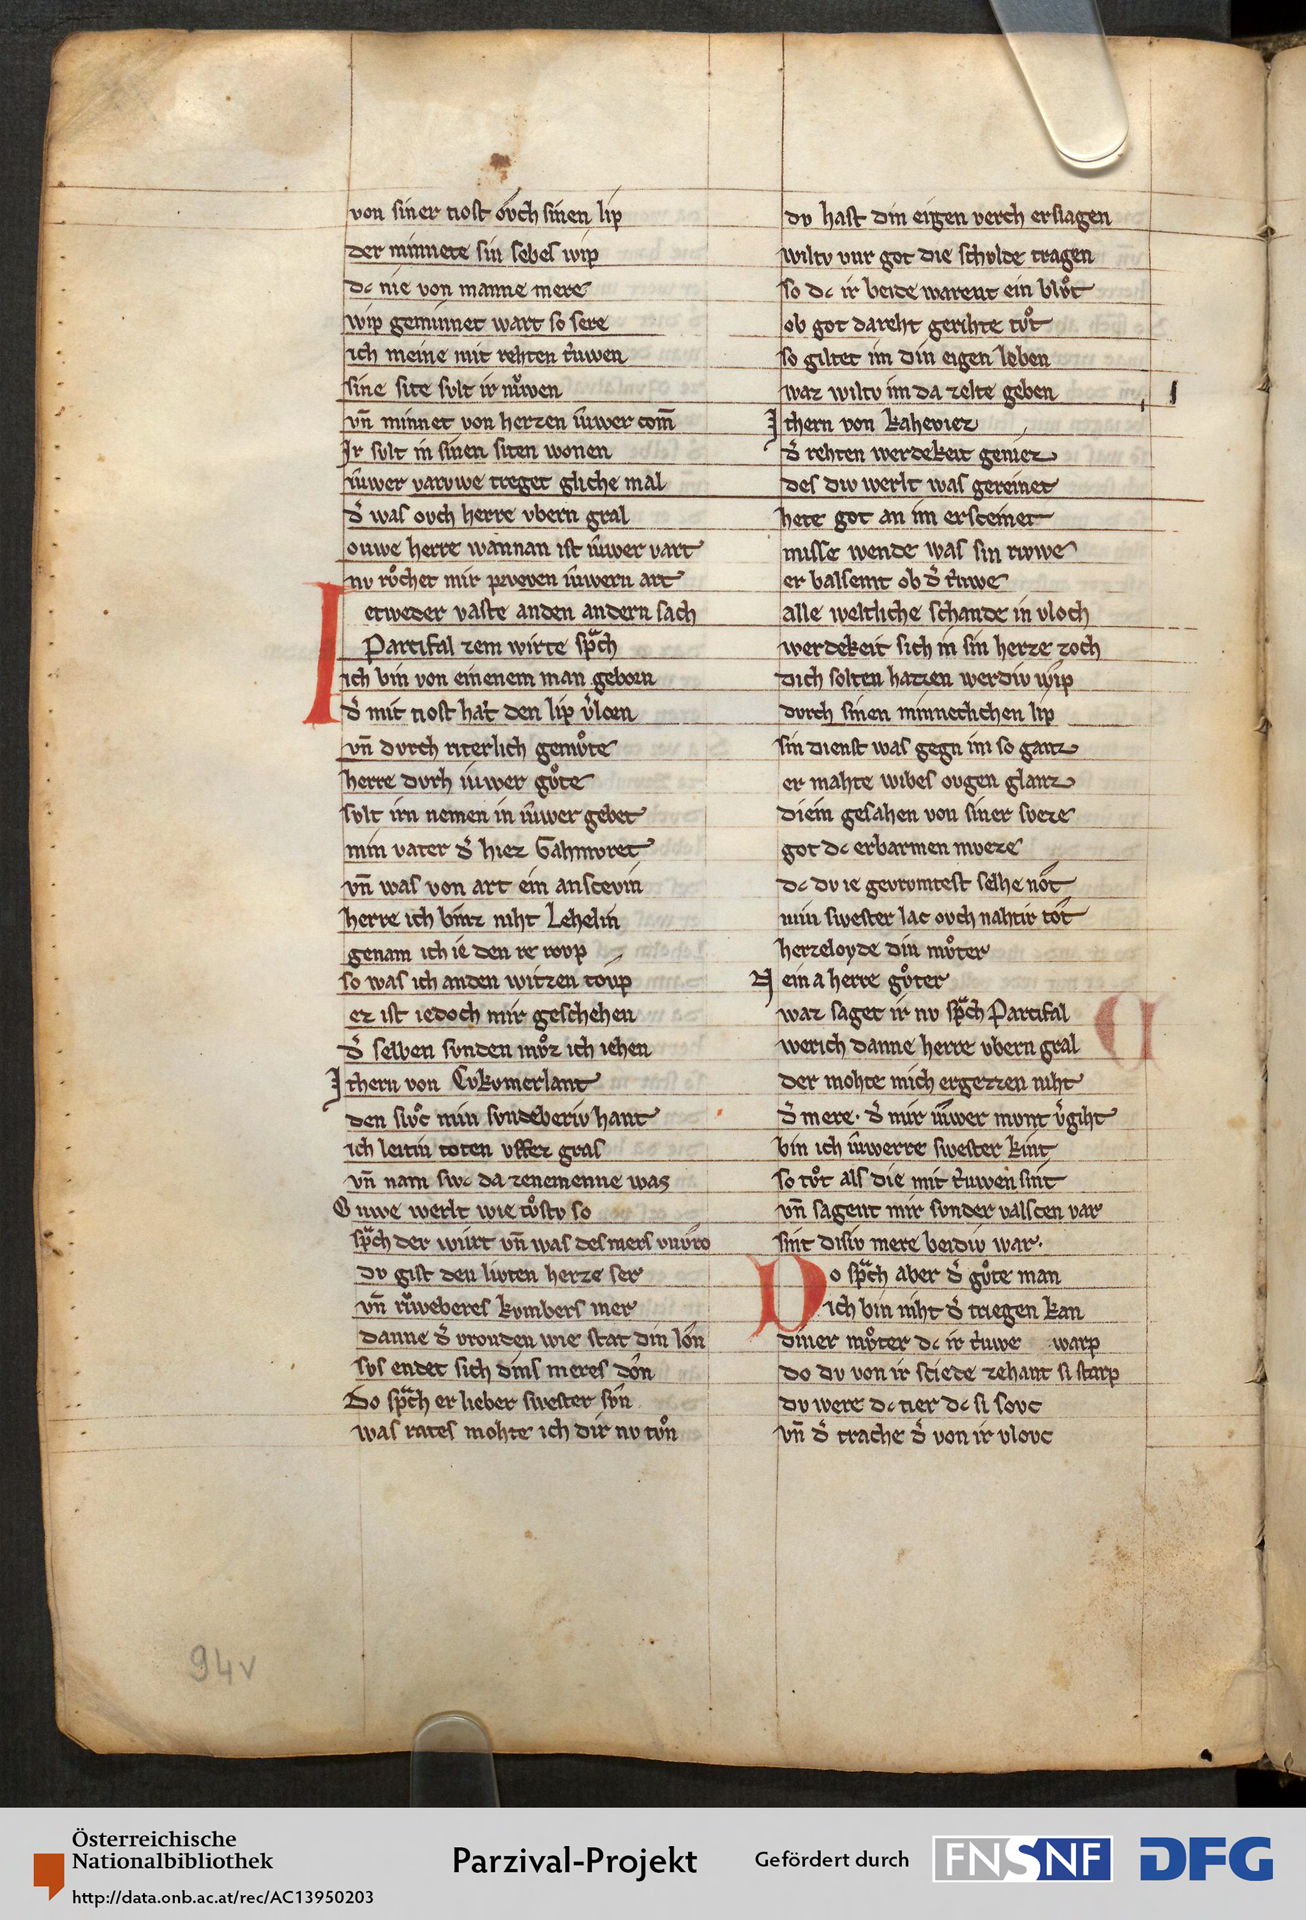 von siner tiost oͮch sinen lip
der minnete sin sebes wip
dc nie von manne mere
wip geminnet wart so sere
ich meine mit rehten trͥuwen
sine site svlt ir nuͥwen
vn̄ minnet von herzen uͥwer com̄
Ir svlt in sinen siten wonen
uͥwer varvwe treget gliche mal
dˢ was ovch herre vbern gral
ouwe herre wannan ist uͥwer vart
nv rvͦchet mir prveven uͥwern art
Ietweder vaste anden andern sach
Partifal zem wirte spᵃch
ich bin von einenem man geborn
dˢ mit tiost hat den lip vˢlorn
vn̄ dvrch riterlich gemvͦte
herre dvrh uͥwer gvͦte
svlt irn nemen in uͥwer gebet
min vater dˢ hiez Gahmvret
vn̄ was von art ein anscevin
herre ich binz niht Lehelin
genam ich ie den re rovp
so was ich anden witzen tovp
ez ist iedoch mir geschehen
dˢ selben svnden mvͦz ich iehen
Ithern von Cvkvmerlant
den slvͦc min svndeberiv hant
ich leitin toten vffez gras
vn̄ nam swc da zenemenne was
Ouwe werlt wie tvͦstv so
spᵃch der wirt vn̄ was des mers vnvro
dv gist den livten herze ser
vn̄ ruͥweberes kvmbers mer
danne dˢ vrouden wie stat din lon
svs endet sich dins meres don
Do spᵃch er lieber swester svn
was rates mohte ich dir nv tvͦn
dv hast din eigen verch erslagen
wiltv vur got die schvlde tragen
so dc ir beide warent ein blvͦt
ob got da reht gerihte tvͦt
so giltet im din eigen leben
waz wiltv im da zelte geben
Ithern von kaheviez
dˢ rehten werdekeit geniez
des div werlt was gereinet
hete got an im ersceinet
misse wende was sin rvwe
er balsemt ob dˢ trͥuwe
alle weltliche schande in vloch
werdekeit sich in sin herze zoch
dich solten hazzen werdiv wip
dvrch sinen minneclichen lip
sin dienst was gegn im so ganz
er mahte wibes ovgen glanz
diein gesahen von siner sveze
got dc erbarmen mveze
dc dv ie gevrvmtest selhe not
min swester lac ovch nahtir tot
herzeloyde din mvͦter
Nein a herre gvͦter
waz saget ir nv spᵃch Partifal
werich danne herre vbern gral
der mohte mich ergetzen niht
dˢ mere · dˢ mir uͥwer mvnt vˢgiht
bin ich uͥwerre swester kint
so tvͦt als die mit trͥuwen sint
vn̄ sagent mir svnder valscen var
sint disiv mere beidiv war ·
Do spᵃch aber dˢ gvͦte man
ich bin niht dˢ triegen kan
diner mvͦter dc ir trͥuwe warp
do dv von ir sciede zehant si starp
dv were dc tier dc si sovc
vn̄ dˢ trache dˢ von ir vlovc
94v
Österreichische
Nationalbibliothek
http://data.onb.ac.at/rec/AC13950203
Parzival-Projekt
Gefördert durch
FNSNF
DFG